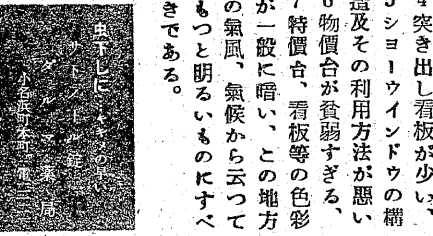 4突き出し看板が少い、
5ショーウインドウの構
造及その利用方法が悪い
6物價台が貧弱すぎる、
7特價台、看板等の色彩
が一般に暗い、この地方
の氣風、氣候から云つて
もつと明るいものにすべ
きである。
虫下しに…キキメの早い
サントニール錠
ダルマ薬局
小名浜町本町 電